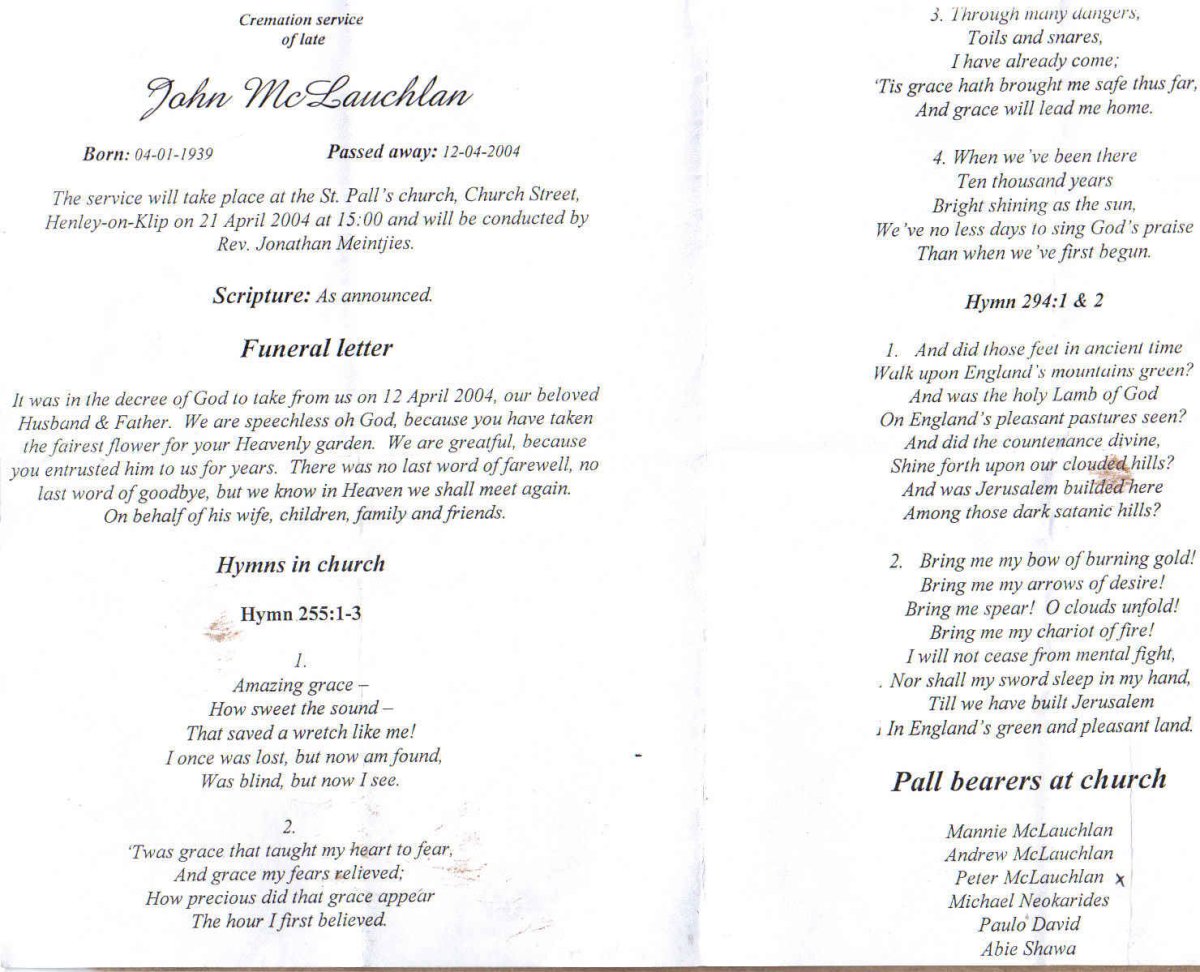 Cremation service
of late
John McLauchlan
Born: 04-01-1939 Passed away: 12-04-2004
The service will take place at the St. Pall's church, Church Street,
Henley-on-Klip on 21 April 2004 at 15:00 and will be conducted by
Rev. Jonathan Meintjies.
Scripture: As announced.
Funeral letter
It was in the decree of God to take from us on 12 April 2004, our beloved
Husband & Father. We are speechless oh God, because you have taken
the fairest flower for your Heavenly garden. We are greatful, because
you entrusted him to us for years. There was no last word of farewell, no
last word of goodbye, but we know in Heaven we shall meet again.
On behalf of his wife, children, family and friends.
Hymns in church
Hymn 255:1-3
1.
Amazing grace –
How sweet the sound –
That saved a wretch like me!
I once was lost, but now am found,
Was blind, but now I see.
2.
'Twas grace that taught my heart to fear,
And grace my fears relieved;
How precious did that grace appear
The hour I first believed.
3. Through many dangers,
Toils and snares,
I have already come;
'Tis grace hath brought me safe thus far,
And grace will lead me home.
4. When we've been there
Ten thousand years
Bright shining as the sun,
We've no less days to sing God's praise
Than when we've first begun.
Hymn 294:1 & 2
1. And did those feet in ancient time
Walk upon England's mountains green?
And was the holy Lamb of God
On England's pleasant pastures seen?
And did the countenance divine,
Shine forth upon our clouded hills?
And was Jerusalem builded here
Among those dark satanic hills?
2. Bring me my bow of burning gold!
Bring me my arrows of desire!
Bring me spear! O clouds unfold!
Bring me my chariot of fire!
I will not cease from mental fight,
Nor shall my sword sleep in my hand,
Till we have built Jerusalem
In England's green and pleasant land.
Pall bearers at church
Mannie McLauchlan
Andrew McLauchlan
Peter McLauchlan x
Michael Neokarides
Paulo David
Abie Shawa